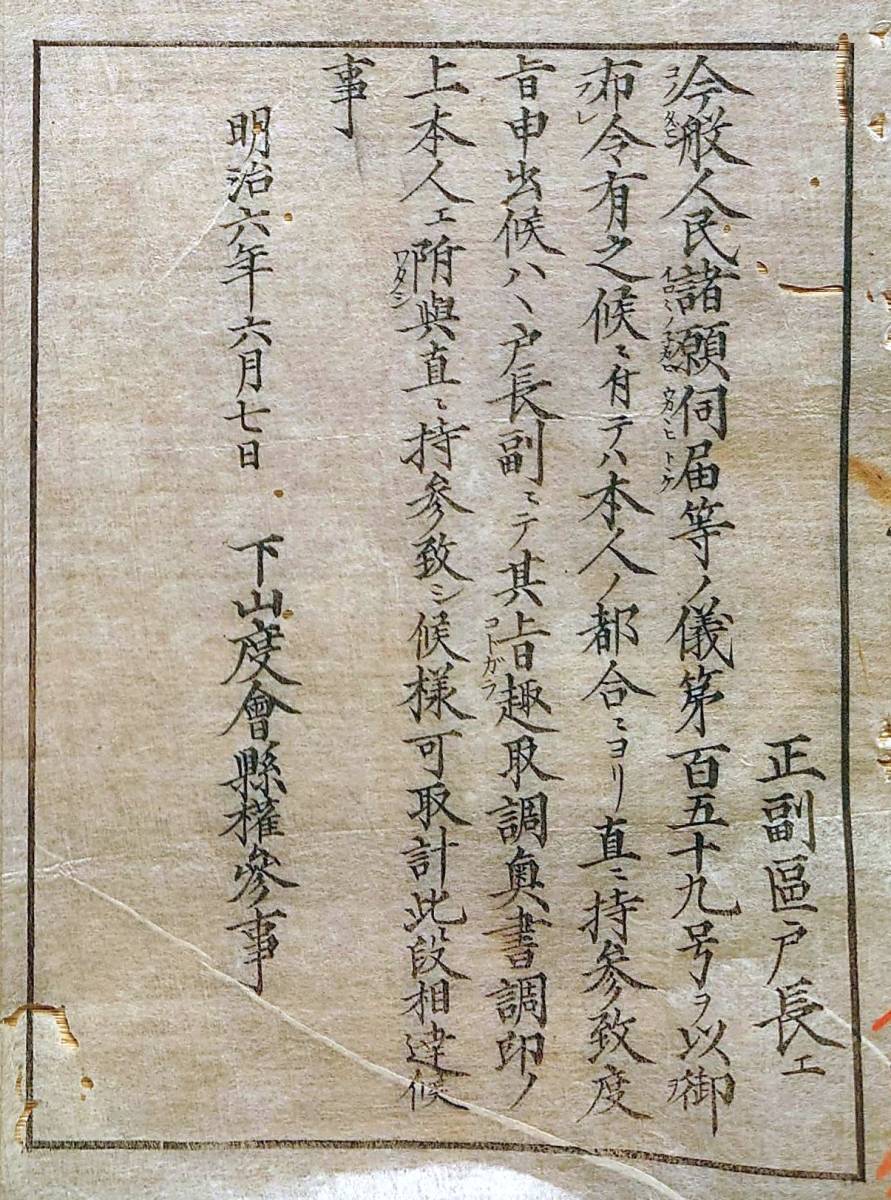 正副區戸長エ
今般人民諸願伺届等ノ儀第百五十九号ヲ以御
布令有之候ニ付テハ本人ノ都合ニヨリ直ニ持参致度
旨申出候ハヽ戸長副ニテ其旨趣取調奥書調印ノ
上本人エ附與直ニ持参致シ候様可取計此段相達候
事
明治六年六月七日　下山度會縣權參事